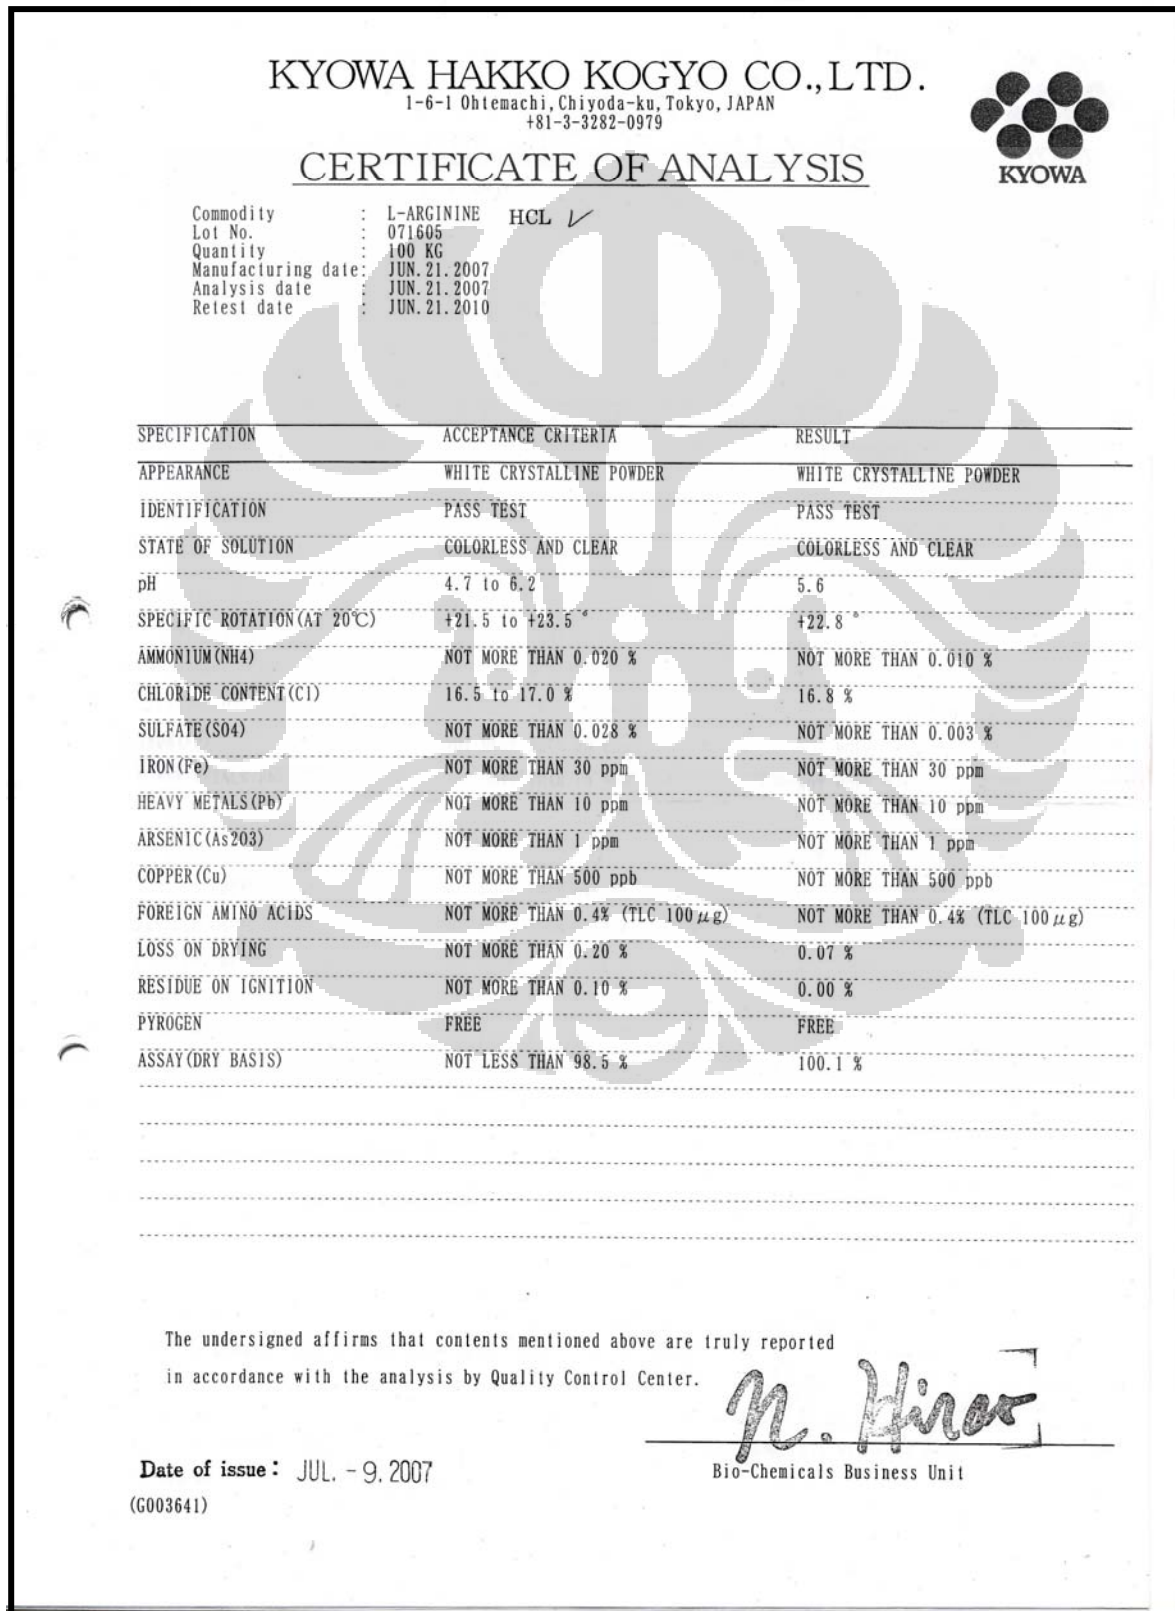 KYOWA HAKKO KOGYO CO.,LTD.
1-6-1 Ohtemachi,Chiyoda-ku,Tokyo,JAPAN
+81-3-3282-0979
KYOWA
CERTIFICATE OF ANALYSIS
Commodity : L-ARGININE HCL
Lot No. : 071605
Quantity : 100 KG
Manufacturing date: JUN.21.2007
Analysis date : JUN.21.2007
Retest date : JUN.21.2010
SPECIFICATION ACCEPTANCE CRITERIA RESULT
APPEARANCE WHITE CRYSTALLINE POWDER WHITE CRYSTALLINE POWDER
IDENTIFICATION PASS TEST PASS TEST
STATE OF SOLUTION COLORLESS AND CLEAR COLORLESS AND CLEAR
pH 4.7 to 6.2 5.6
SPECIFIC ROTATION(AT 20℃) +21.5 to +23.5 ° +22.8 °
AMMONIUM(NH4) NOT MORE THAN 0.020 % NOT MORE THAN 0.010 %
CHLORIDE CONTENT(Cl) 16.5 to 17.0 % 16.8 %
SULFATE(SO4) NOT MORE THAN 0.028 % NOT MORE THAN 0.003 %
IRON(Fe) NOT MORE THAN 30 ppm NOT MORE THAN 30 ppm
HEAVY METALS(Pb) NOT MORE THAN 10 ppm NOT MORE THAN 10 ppm
ARSENIC(As2O3) NOT MORE THAN 1 ppm NOT MORE THAN 1 ppm
COPPER(Cu) NOT MORE THAN 500 ppb NOT MORE THAN 500 ppb
FOREIGN AMINO ACIDS NOT MORE THAN 0.4% (TLC 100μg) NOT MORE THAN 0.4% (TLC 100μg)
LOSS ON DRYING NOT MORE THAN 0.20 % 0.07 %
RESIDUE ON IGNITION NOT MORE THAN 0.10 % 0.00 %
PYROGEN FREE FREE
ASSAY(DRY BASIS) NOT LESS THAN 98.5 % 100.1 %
The undersigned affirms that contents mentioned above are truly reported
in accordance with the analysis by Quality Control Center.
N. Hirao
Bio-Chemicals Business Unit
Date of issue: JUL. -9.2007
(G003641)